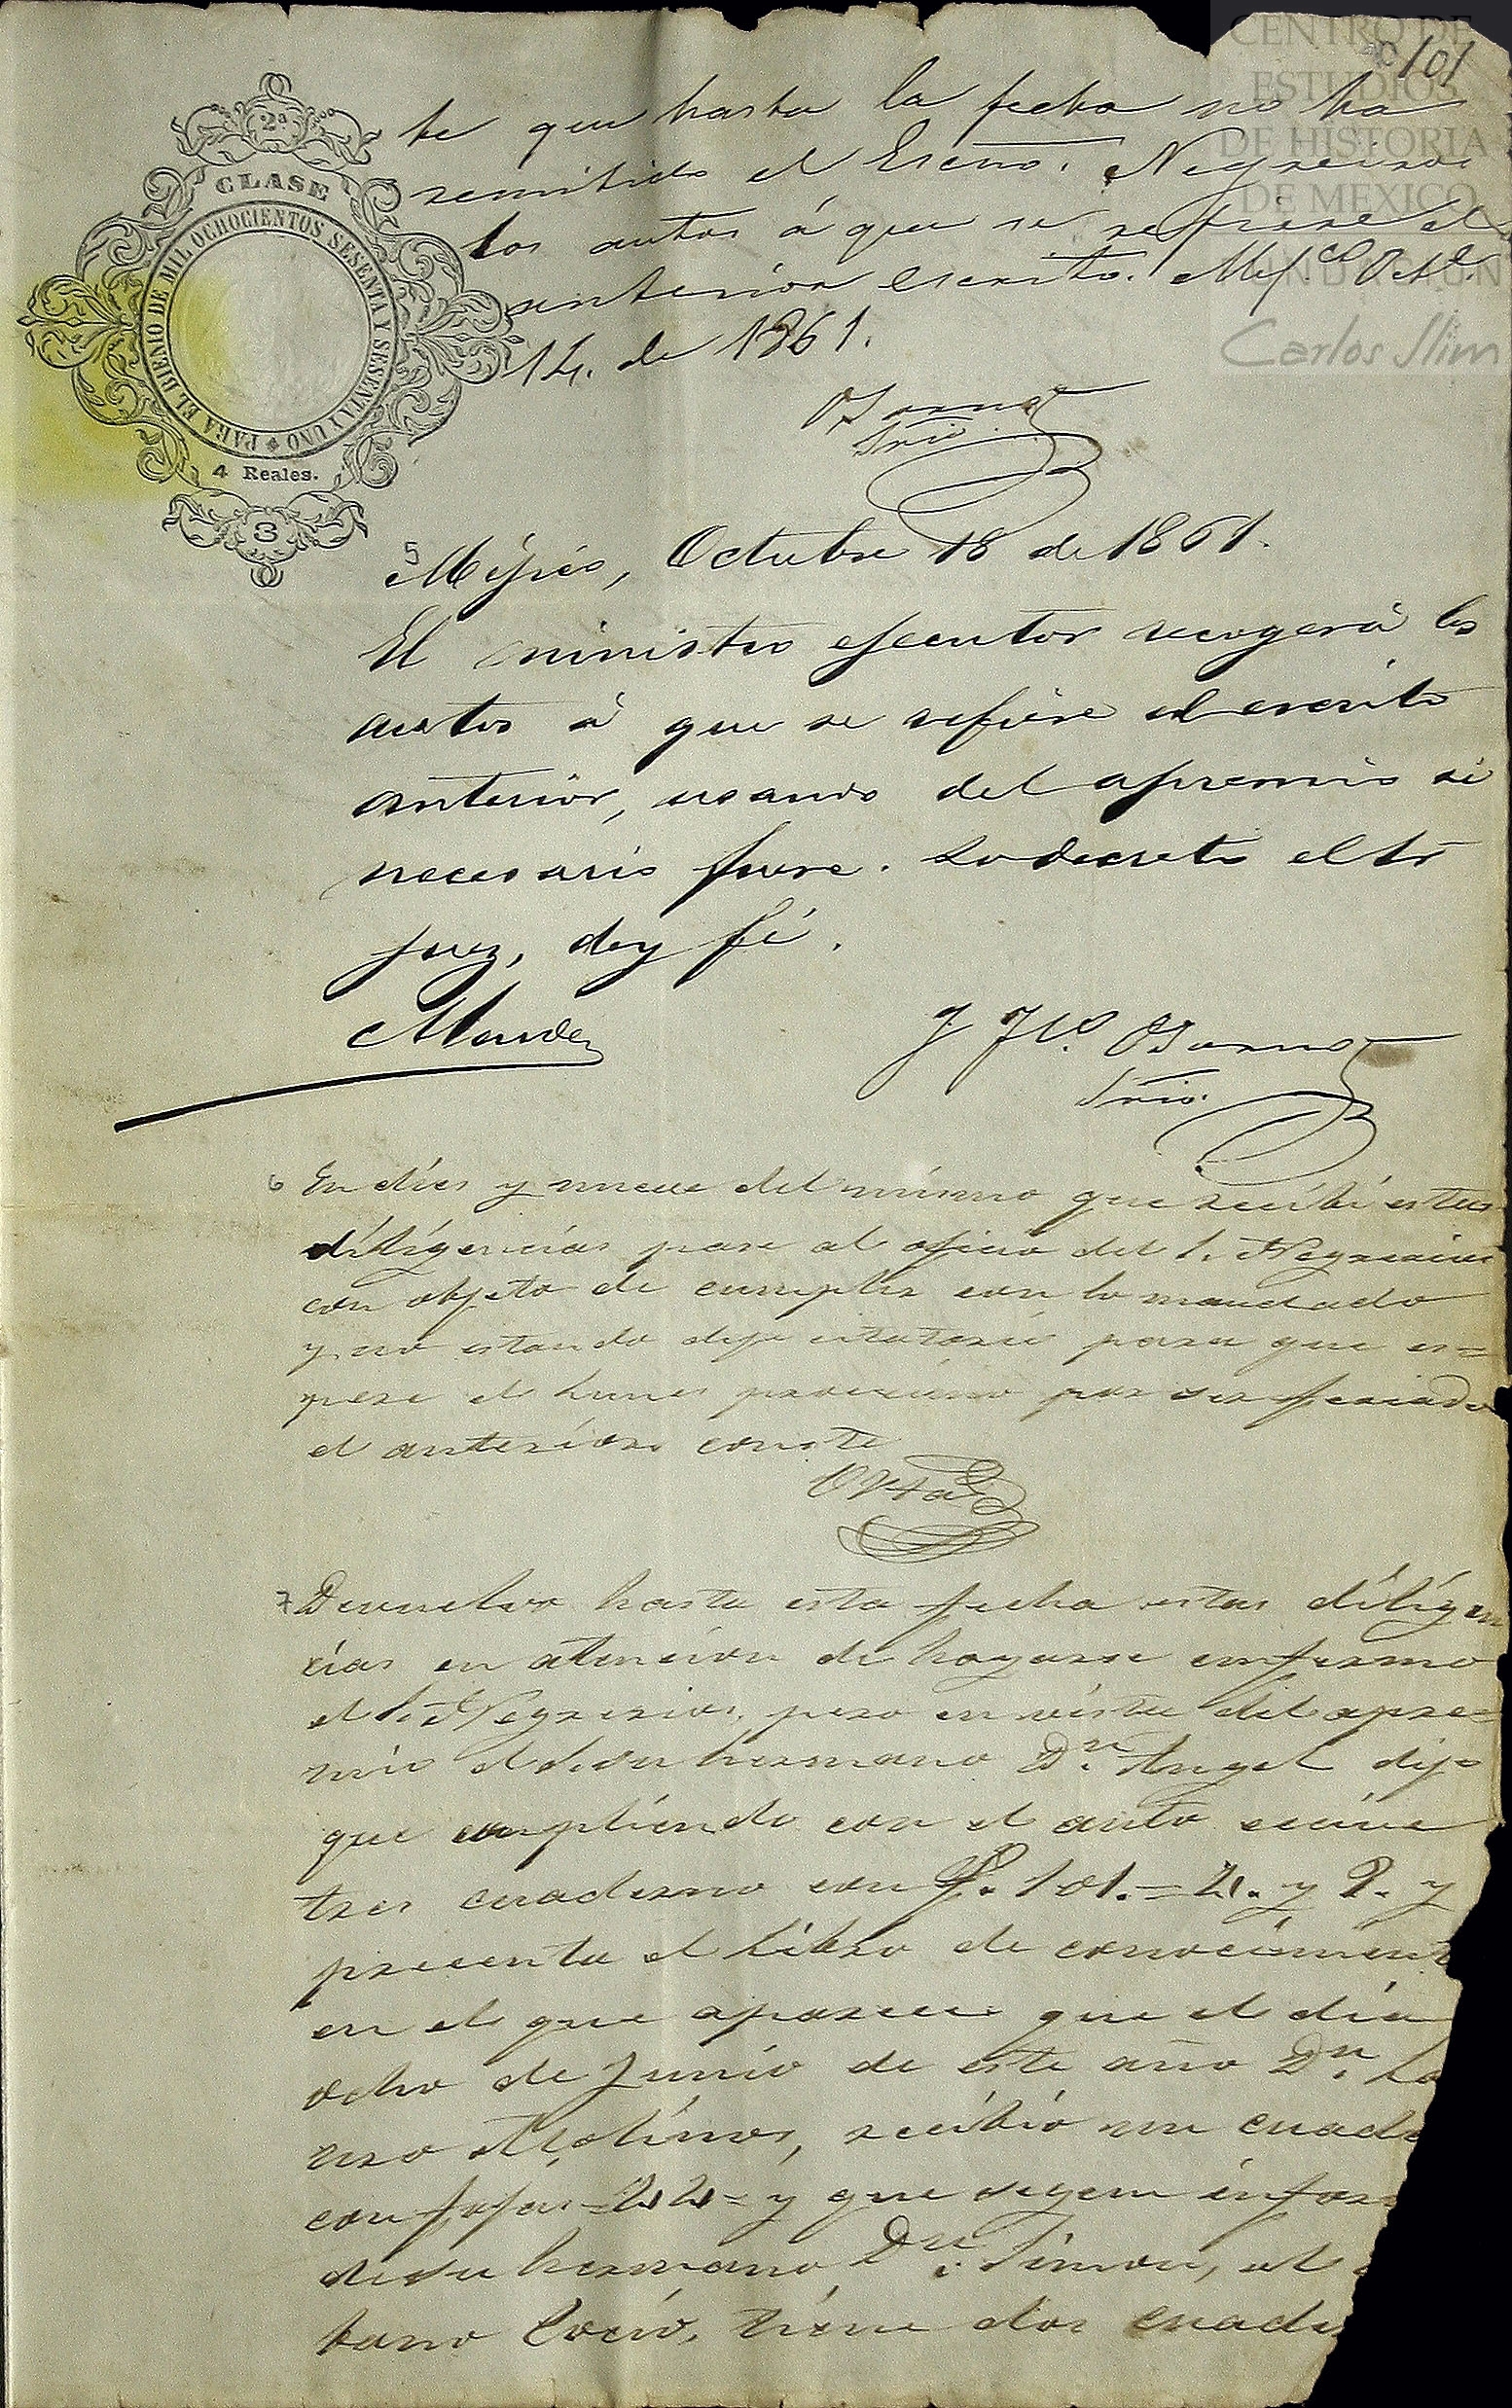 CENTRO DE
ESTUDIOS
DE HISTORIA
DE MEXICO
FUNDACION
Carlos Slim
101
2ª
CLASE
PARA EL BIENIO DE MIL OCHOCIENTOS SESENTA Y SESENTA Y UNO
4 Reales.
3
te que hasta la fecha no ha
remitido el Escno. Negreiros
los autos á que se refiere el
anterior escrito. Mej.co Oct.e
14. de 1861.
Osorno
Srio.
5
Méjico, Octubre 18 de 1861.
El ministro ejecutor recogerá los
autos á que se refiere el escrito
anterior, usando del apremio si
necesario fuere. Lo decretó el Sr
juez, doy fé.
Mendez
J Osorno
Srio.
6 En diez y nueve del mismo que recibí estas
diligencias pase al oficio del S. Negreiros
con objeto de cumplir con lo mandado
y no estando deje citatorio para que es=
pere el Lunes procsimo por ser feriado
el anterior conste
7 Devuelvo hasta esta fecha estas diligen
cias en atencion de hayarse enfermo
el S. Negreiros, pero en vista del apre=
mio el de su hermano Dn. Angel dijo
que cumpliendo con el auto
tres cuaderno con f. 101.= 21. y 2. y
presenta el Libro de conocimient
en el que aparece que el dia
ocho de Junio de este año Dn. La
uro Molinos, recibió un cuade
con fojas =22= y que segun infor
de su hermano Dn. Simon, el
bano Cocio, tiene dos cuade